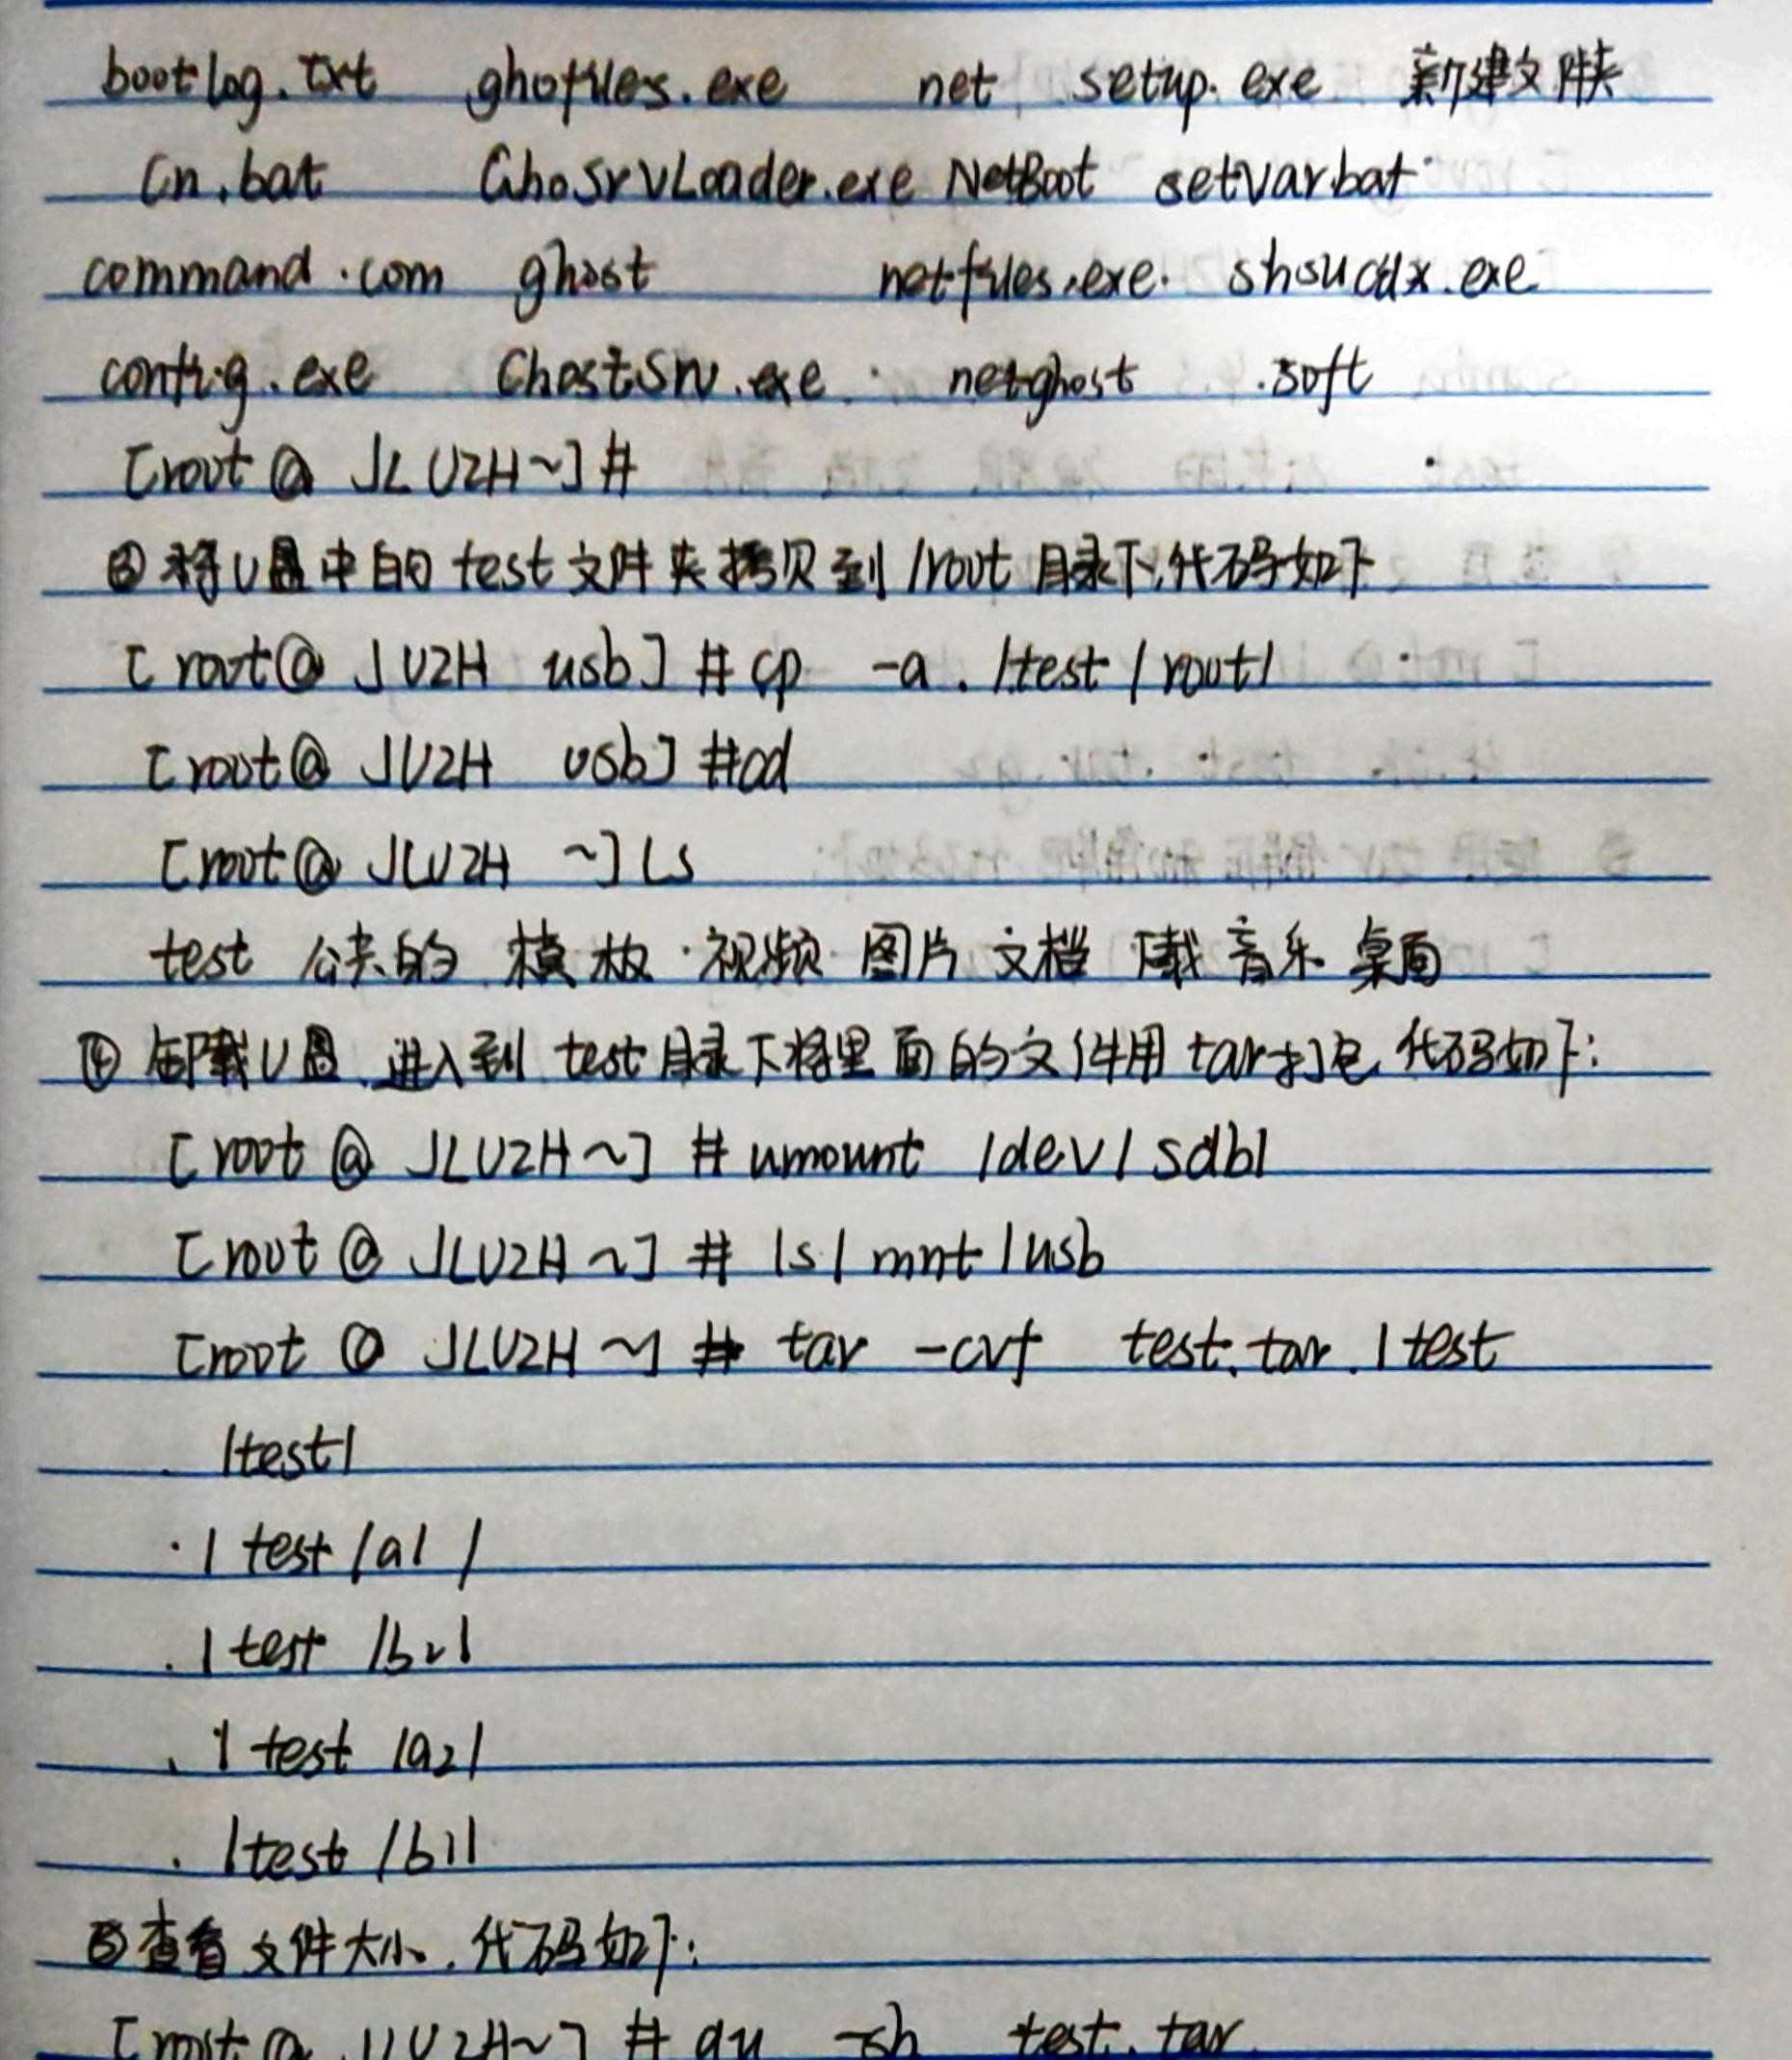 bootlog.txt ghofiles.exe net setup.exe 新建文件夹
Cn.bat GhoSrvLoader.exe NetBoot setvar.bat
command.com ghost netfiles.exe. shsucdx.exe
config.exe GhostSrv.exe netghost .soft
[root@ JLUZH~]#
③将U盘中的test文件夹拷贝到/root目录下,代码如下
[root@ JUZH usb]#cp -a ./test/root/
[root@ JUZH usb]#cd
[root@ JLUZH ~]ls
test 公共的 模板 视频 图片 文档 下载 音乐 桌面
④卸载U盘,进入到test目录下将里面的文件用tar打包,代码如下:
[root@ JLUZH~]#umount /dev/sdb1
[root@ JLUZH~]# ls/mnt/usb
[root@ JLUZH~]# tar -cvf test.tar ./test
./test/
./test/a1/
./test/b2/
./test/a2/
./test/b1/
⑤查看文件大小,代码如下:
[root@ JLUZH~]# du -sh test.tar